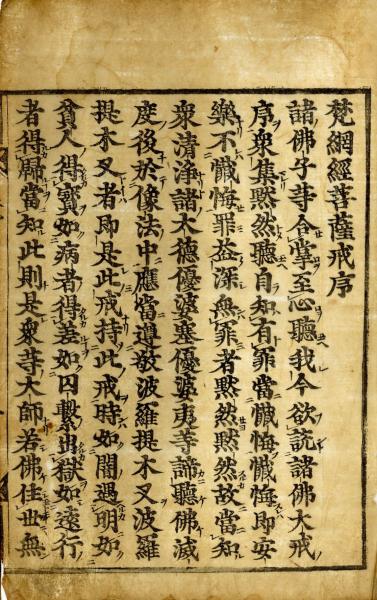 梵網經菩薩戒序
諸佛子等合掌至心聽我今欲說諸佛大戒
序衆集黙然聽自知有罪當懺悔懺悔即安
樂不懺悔罪益深無罪者黙然黙然故當知
衆清淨諸大德優婆塞優婆夷等諦聽佛滅
度後於像法中應當遵敬波羅提木叉波羅
提木叉者即是此戒持此戒時如闇遇明如
貧人得寶如病者得差如囚繫出獄如遠行
者得歸當知此則是衆等大師若佛住世無